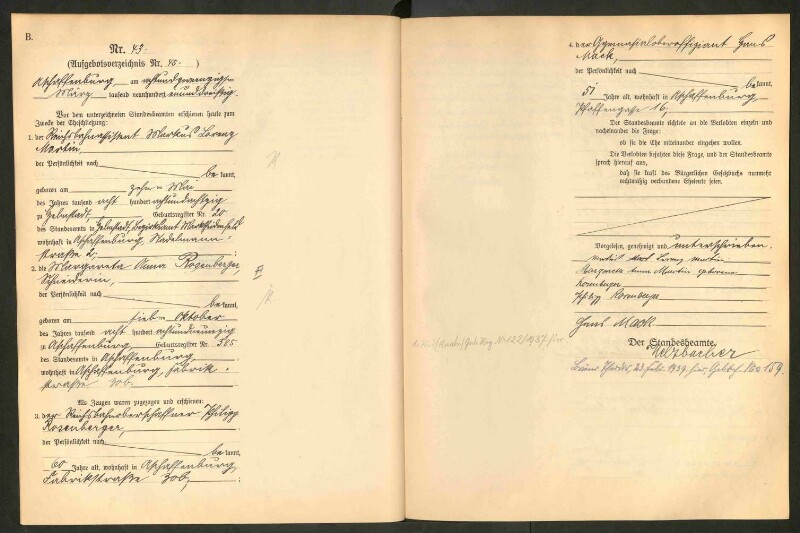 B.
Nr. 49.
(Aufgebotsverzeichnis Nr. 48.)
Aschaffenburg, am achtundzwanzigsten
März tausend neunhundert einunddreißig.
Vor dem unterzeichneten Standesbeamten erschienen heute zum
Zwecke der Eheschließung:
1. der Reichsbahnassistent Markus Lorenz
Martin,
der Persönlichkeit nach
bekannt,
geboren am zehn = Mai
des Jahres tausend acht hundert achtundachtzig
zu Helmstadt, Geburtsregister Nr. 20
des Standesamts in Helmstadt, Bezirksamt Marktheidenfeld
wohnhaft in Aschaffenburg, Nadelmann-
straße 2;
2. die Margareta Anna Rosenberger,
Schneiderin,
der Persönlichkeit nach
bekannt,
geboren am sieb = Oktober
des Jahres tausend acht hundert achtundneunzig
zu Aschaffenburg, Geburtsregister Nr. 585
des Standesamts in Aschaffenburg,
wohnhaft in Aschaffenburg, Fabrik-
straße
Als Zeugen waren zugezogen und erschienen:
3. der Reichsbahnoberschaffner Philipp
Rosenberger,
der Persönlichkeit nach
bekannt,
60 Jahre alt, wohnhaft in Aschaffenburg,
Fabrikstraße
4. der Gymnasialoberoffiziant Hans
Mack,
der Persönlichkeit nach
bekannt,
51 Jahre alt, wohnhaft in Aschaffenburg,
Pfaffengasse 16;
Der Standesbeamte richtete an die Verlobten einzeln und
nacheinander die Frage:
ob sie die Ehe miteinander eingehen wollen.
Die Verlobten bejahten diese Frage, und der Standesbeamte
sprach hierauf aus,
daß sie kraft des Bürgerlichen Gesetzbuchs nunmehr
rechtmäßig verbundene Eheleute seien.
Vorgelesen, genehmigt und unterschrieben.
Lorenz Martin
Margareta Anna Martin geborene
Rosenberger
Philipp Rosenberger
Hans Mack
Der Standesbeamte.